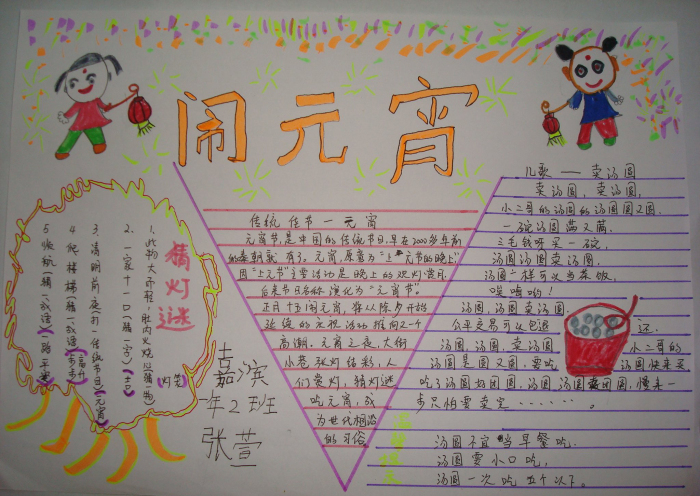 闹元宵
猜灯谜
1.此物大而轻,肚内火烧心(猜物)(灯笼)
2.一家十一口(猜一字)(吉)
3.清明前夜(打一传统节日)(元宵)
4.爬楼梯(猜一成语)(步步高升)
5.快航(猜一成语)(一路平安)
传统佳节一元宵
元宵节,是中国的传统节日,早在2000多年前
的秦朝就有了。元宵,原意为“上元节的晚上”,
因“上元节”主要活动是晚上的观灯赏月,
后来节日名称演化为“元宵节”。
正月十五闹元宵,将从除夕开始
延续的庆祝活动推向又一个
高潮。元宵之夜,大街
小巷张灯结彩,人
们赏灯,猜灯谜
吃元宵,成
为世代相沿
的习俗
嘉滨
一年2班
张萱
儿歌——卖汤圆
卖汤圆,卖汤圆,
小二哥的汤圆的汤圆圆又圆.
一碗汤圆满又满.
三毛钱呀买一碗,
汤圆汤圆卖汤圆,
汤圆一样可以当茶饭,
唉嗨哟!
汤圆,汤圆卖汤圆
公平交易可以包退 还.
汤圆,汤圆,卖汤圆 小二哥的
汤圆是圆又圆,要吃 汤圆快来买
吃了汤圆好团圆,汤圆,汤圆卖团圆,慢来一
步只怕要卖完……。
汤圆不宜当早餐吃.
汤圆要小口吃,
汤圆一次吃五个以下。